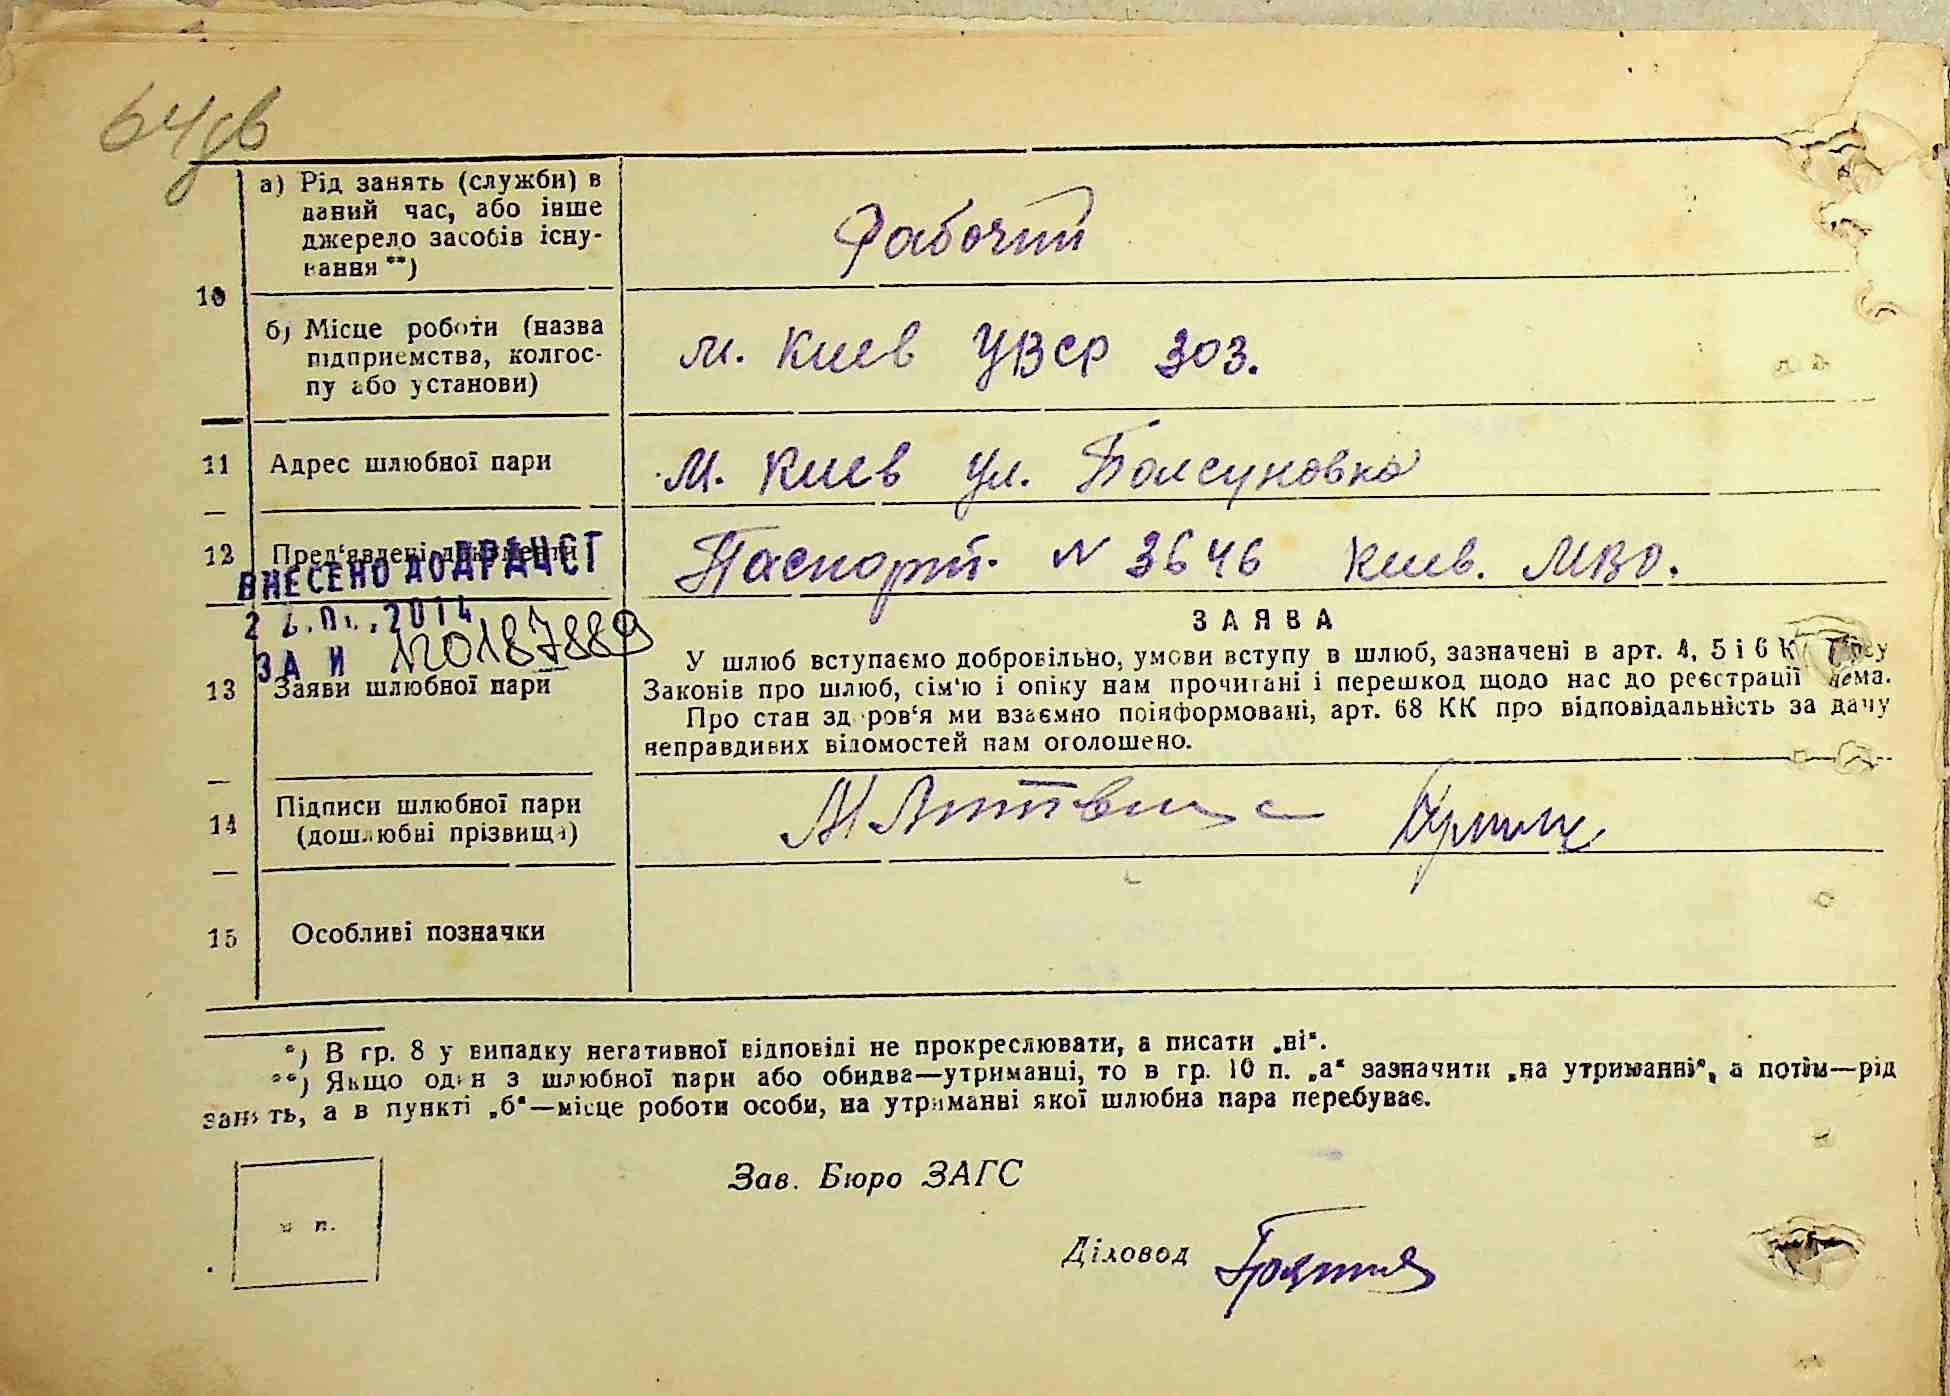 64 дв
а) Рід занять (служби) в
даний час, або інше
джерело засобів існу-
вання **)
Рабочий
10
б) Місце роботи (назва
підприємства, колгос-
пу або установи)
м. Киев УВСР 303.
11 Адрес шлюбної пари
м. Киев ул. Болсуновка
12 Пред'явлені документи
Паспорт. N 3646 Киев. МВО.
ВНЕСЕНО ДО ДРАЦСГ
2014
ЗА И N20187889
13 Заяви шлюбної пари
ЗАЯВА
У шлюб вступаємо добровільно, умови вступу в шлюб, зазначені в арт. 4, 5 і 6
Законів про шлюб, сім'ю і опіку нам прочитані і перешкод щодо нас до реєстрації нема.
Про стан здоров'я ми взаємно поінформовані, арт. 68 КК про відповідальність за дачу
неправдивих відомостей нам оголошено.
14 Підписи шлюбної пари
(дошлюбні прізвища)
15 Особливі позначки
*) В гр. 8 у випадку негативної відповіді не прокреслювати, а писати „ні“.
**) Якщо один з шлюбної пари або обидва—утриманці, то в гр. 10 п. „а“ зазначити „на утриманні“, а потім—рід
занять, а в пункті „б“—місце роботи особи, на утриманні якої шлюбна пара перебуває.
м п.
Зав. Бюро ЗАГС
Діловод